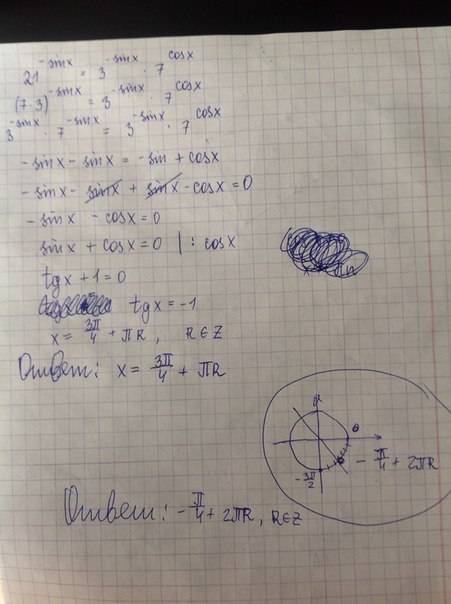 21^{-sinx} = 3^{-sinx} · 7^{cosx}
(7·3)^{-sinx} = 3^{-sinx} 7^{cosx}
3^{-sinx} · 7^{-sinx} = 3^{-sinx} · 7^{cosx}
-sinx - sinx = -sin + cosx
-sinx - sinx + sinx - cosx = 0
-sinx - cosx = 0
sinx + cosx = 0 | : cosx
tgx + 1 = 0
tgx = -1
x = 3π/4 + πk, k∈Z
Ответ: x = 3π/4 + πk
0
-π/4 + 2πk
-3π/2
Ответ: -π/4 + 2πk, k∈Z